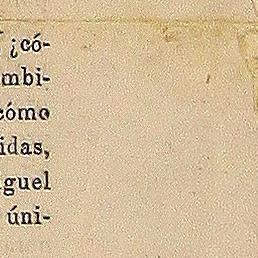 ¿có-
mbi-
cómo
idas,
guel
úni-